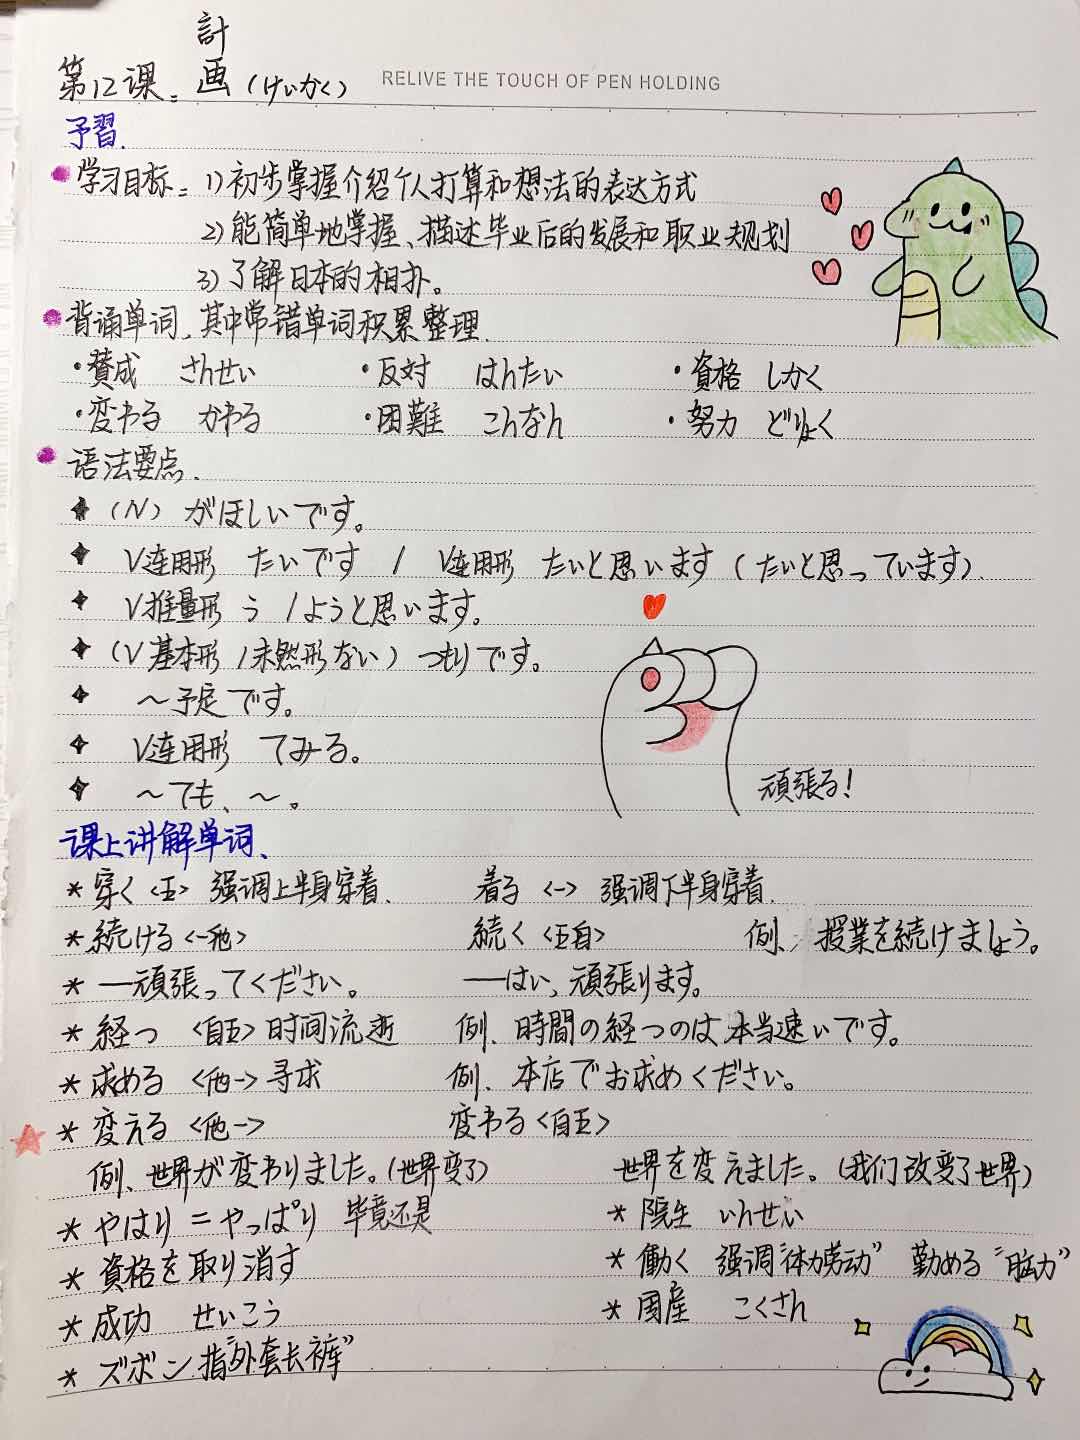 第12课：計画（けいかく） RELIVE THE TOUCH OF PEN HOLDING
予習.
学习目标：1)初步掌握介绍个人打算和想法的表达方式
2)能简单地掌握、描述毕业后的发展和职业规划
3)了解日本的相扑。
背诵单词.其中常错单词积累整理.
·賛成 さんせい ·反対 はんたい ·資格 しかく
·変わる かわる ·困難 こんなん ·努力 どりょく
语法要点.
（N）がほしいです。
V连用形 たいです / V连用形 たいと思います（たいと思っています）.
V推量形 う/ようと思います。
（V基本形/未然形ない）つもりです。
～予定です。
V连用形 てみる。
～ても、～。
頑張る！
课上讲解单词、
*穿く<五> 强调上半身穿着. 着る<一> 强调下半身穿着.
*続ける<一他> 続く<五自> 例、授業を続けましょう。
*—頑張ってください。 —はい、頑張ります。
*経つ <自五>时间流逝 例、時間の経つのは本当速いです。
*求める<他一>寻求 例、本店でお求めください。
*変える<他一> 変わる<自五>
例、世界が変わりました。(世界变了) 世界を変えました。(我们改变了世界)
*やはり=やっぱり 毕竟还是 *院生 いんせい
*資格を取り消す *働く 强调“体力劳动” 勤める“脑力”
*成功 せいこう *国産 こくさん
*ズボン指“外套长裤”